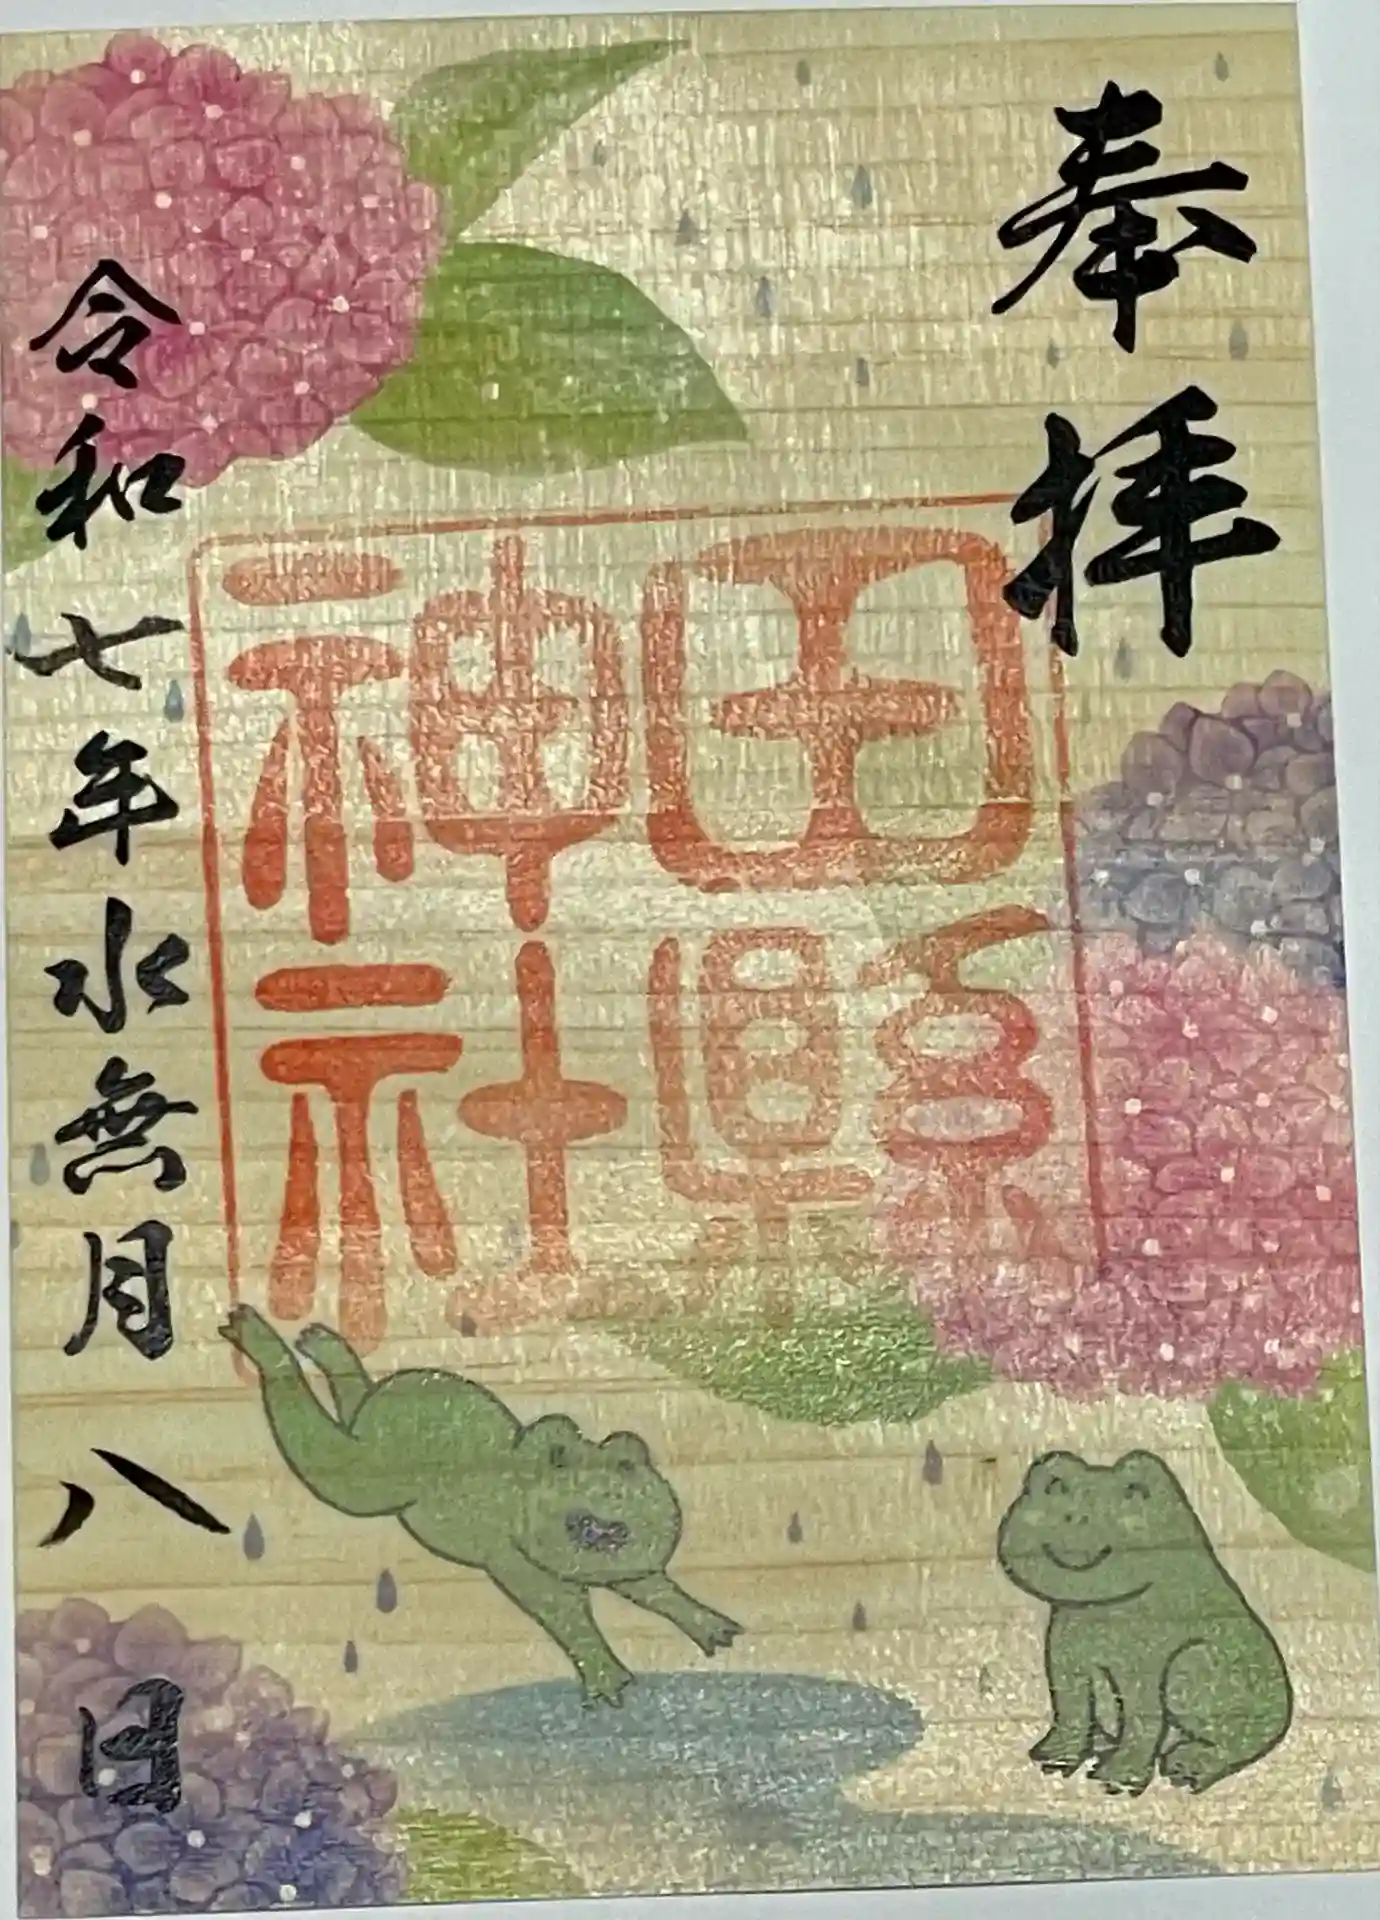 奉拝
田縣
神社
令和七年水無月八日